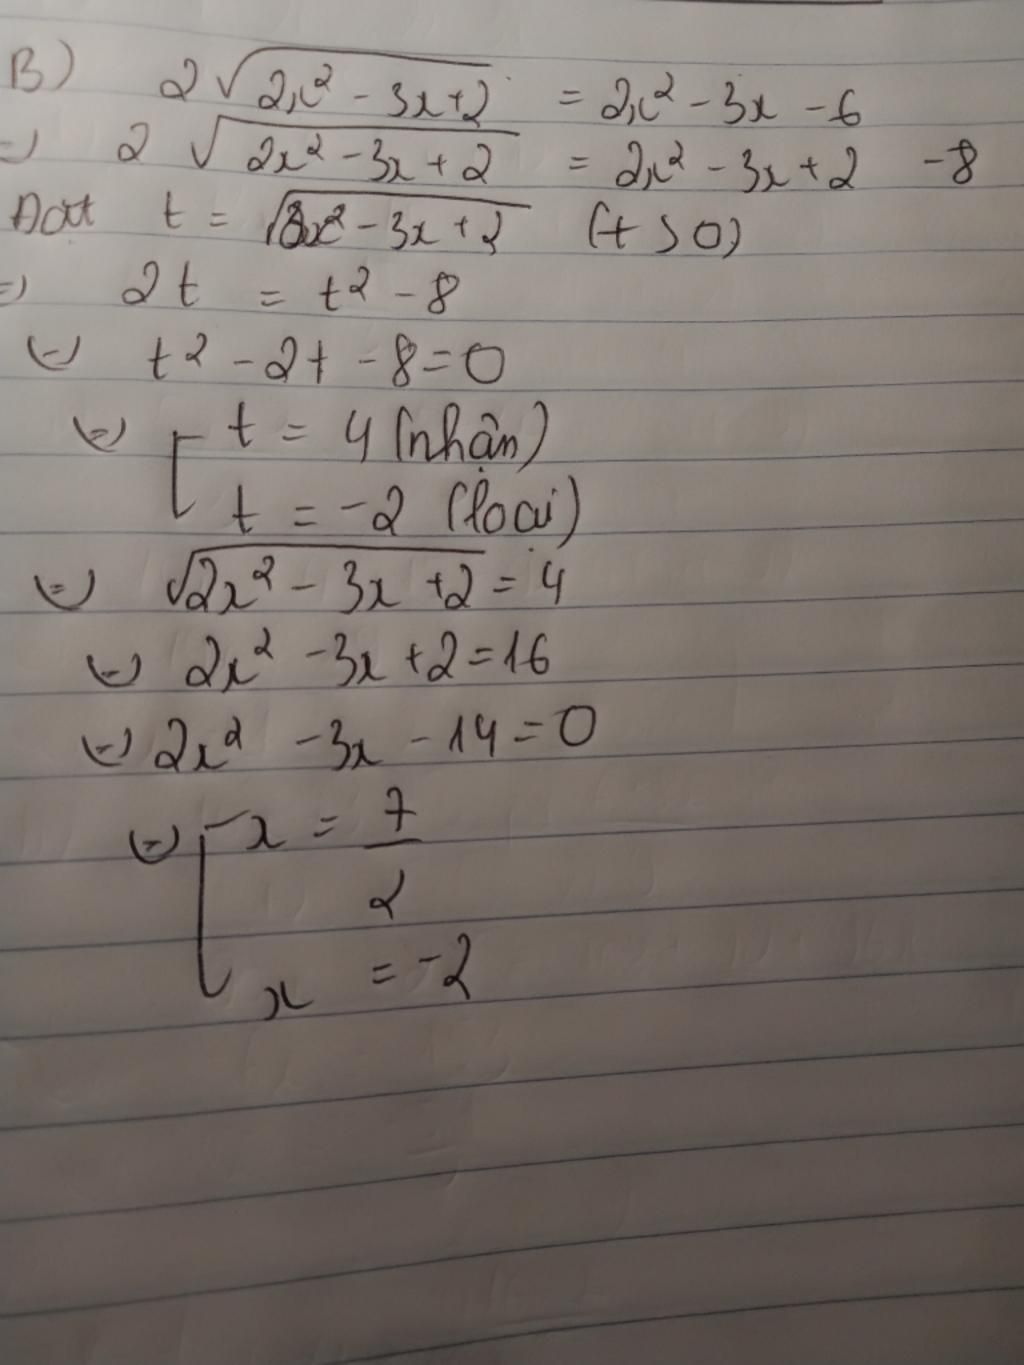 B) 2√(2x² - 3x + 2) = 2x² - 3x - 6
=) 2 √(2x² - 3x + 2) = 2x² - 3x + 2 - 8
Đặt t = √(2x² - 3x + 2) (t > 0)
=) 2t = t² - 8
(=) t² - 2t - 8 = 0
(=) [ t = 4 (nhận)
t = -2 (loại)
(=) √(2x² - 3x + 2) = 4
(=) 2x² - 3x + 2 = 16
(=) 2x² - 3x - 14 = 0
(=) [ x = 7/2
x = -2